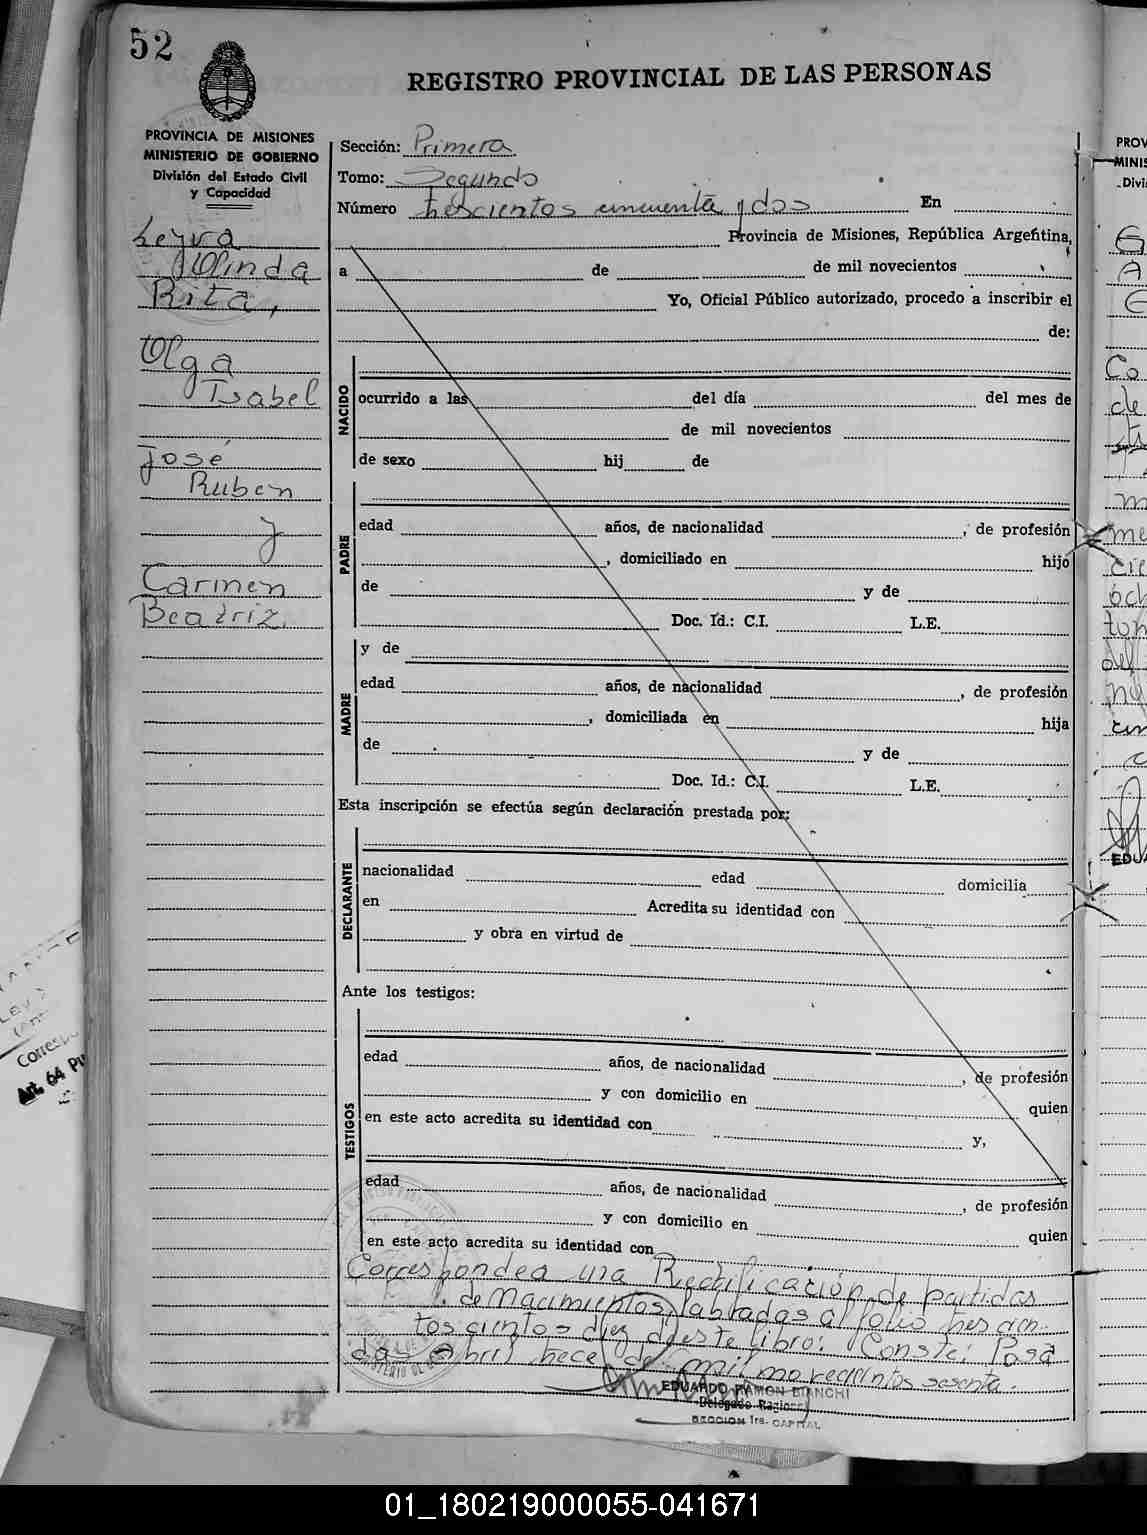 52
REGISTRO PROVINCIAL DE LAS PERSONAS
PROVINCIA DE MISIONES
MINISTERIO DE GOBIERNO
División del Estado Civil
y Capacidad
Leyva
Olinda
Rita,
Olga
Isabel
José
Ruben
y
Carmen
Beatriz.
Sección: Primera
Tomo: Segundo
Número trescientos cincuenta y dos En
Provincia de Misiones, República Argentina,
a de de mil novecientos
Yo, Oficial Público autorizado, procedo a inscribir el
de:
NACIDO
ocurrido a las del día del mes de
de mil novecientos
de sexo hij de
PADRE
edad años, de nacionalidad , de profesión
, domiciliado en hijo
de y de
Doc. Id.: C.I. L.E.
y de
MADRE
edad años, de nacionalidad , de profesión
, domiciliada en hija
de y de
Doc. Id.: C.I. L.E.
Esta inscripción se efectúa según declaración prestada por:
DECLARANTE
nacionalidad edad domicilia
en Acredita su identidad con
y obra en virtud de
Ante los testigos:
TESTIGOS
edad años, de nacionalidad , de profesión
y con domicilio en quien
en este acto acredita su identidad con y,
edad años, de nacionalidad , de profesión
y con domicilio en quien
en este acto acredita su identidad con
Corresponde a una Rectificación de partidas
de Nacimientos, labradas al folio trescien-
tos diez de este libro: Conste: Posa
das Abril trece de mil novecientos sesenta.
EDUARDO RAMON BIANCHI
Delegado Regional
SECCION 1ra. CAPITAL
Corresp
Art. 64
PROV
MINIS
Divi
EDUA
01_180219000055-041671